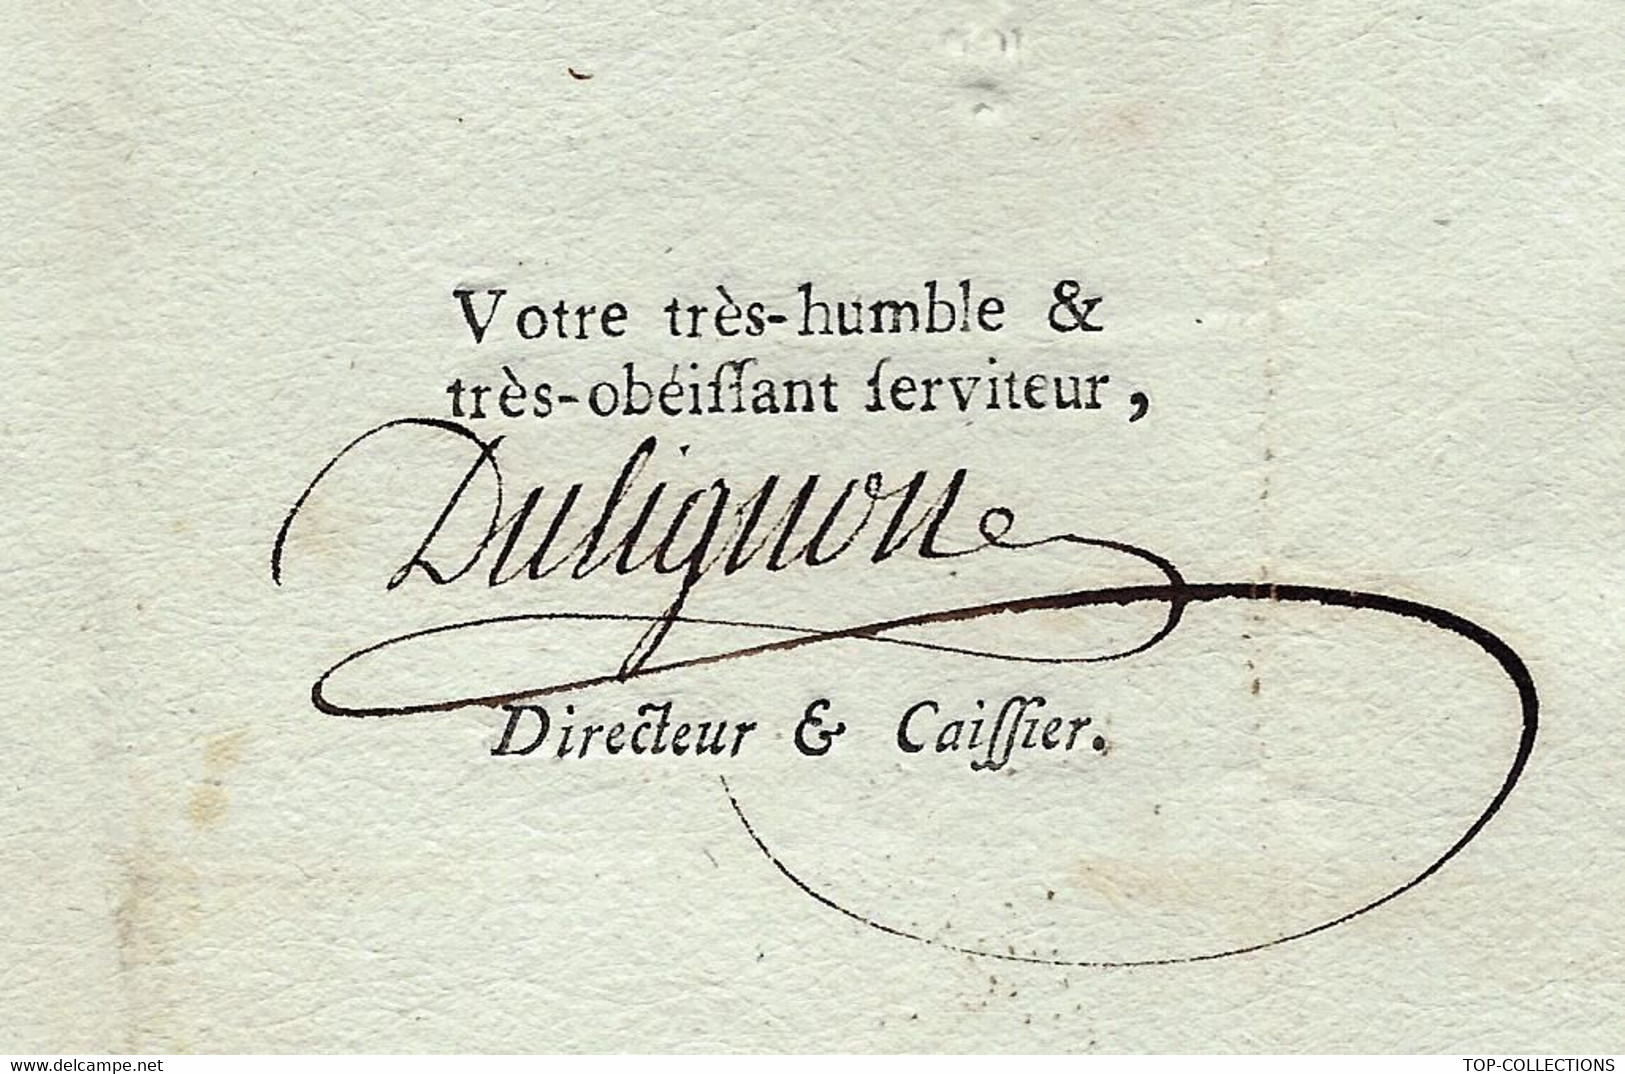 Votre très-humble &
très-obéiſſant ſerviteur,
Dulignon
Directeur & Caiſſier.
delcampe.net
TOP-COLLECTIONS